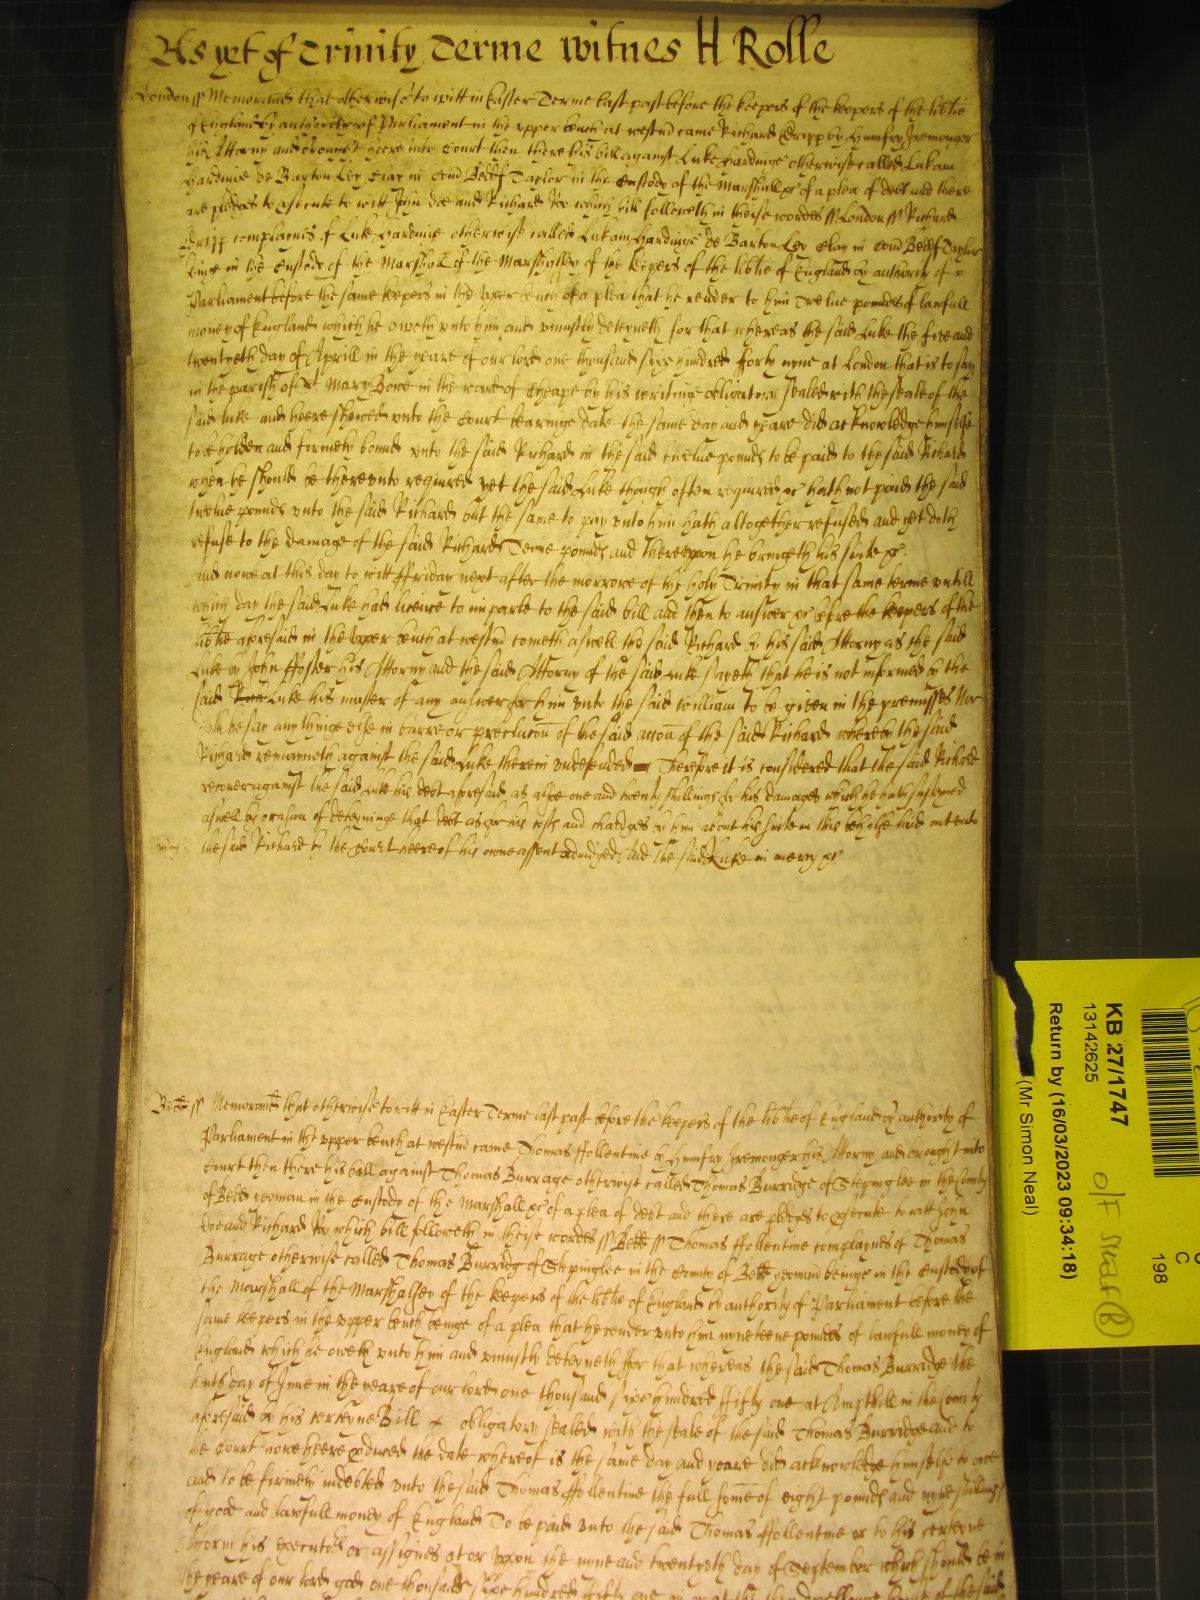 As yet of Trinity Terme Witnes H Rolle
London ss Memorand that otherwise to witt in Easter Terme last past before the keepers of the keepers of the libtie
of England by authoritye of Parliament in the upper bench at westmr came Richard by Humfry Iremonger
his Attorny and brought heere into Court then there his bill against Luke Hardinge otherwise called Lukam
Hardinge de Barton Ley Clay in Com Bedf Taylor in the Custody of the Marshall &c of a plea of debt and there
are pledges to psecute to witt John Doe and Richard Roo which bill followeth in theise wordes ss London ss Richard
complaines of Luke Hardinge otherwise called Lukam Hardinge de Barton Ley Clay in Com Bedf Taylor
beinge in the Custody of the Marshall of the Marshalsey of the keepers of the libtie of England by authority of
Parliament before the same keepers in the upper bench of a plea that he render to him Twelue poundes of lawfull
money of England which he oweth vnto him and vniustly deteyneth for that whereas the said Luke the five and
twentyeth day of Aprill in the yeare of our lord one thousand sixe hundred forty nyne at London that is to say
in the parish of St Mary Bowe in the ward of Cheape by his writinge obligatory sealed with the seale of the
said Luke and heere shewed vnto the Court bearinge date the same day and yeare did acknowledge himselfe
to be holden and firmely bound vnto the said Richard in the said twelue pounds to be paid to the said Richard
when he should be therevnto required yet the said Luke though often required &c hath not paid the said
twelue pounds vnto the said Richard but the same to pay vnto him hath altogether refused and yet doth
refuse to the damage of the said Richard Tenne pounds and therevpon he bringeth his suite &c
And nowe at this day to witt ffriday next after the morrowe of the holy Trinity in that same terme vntill
which day the said Luke had licence to imparle to the said bill and then to answer &c before the keepers of the
libtie aforesaid in the vpper bench at westmr cometh aswell the said Richard by his said Attorny as the said
Luke by John ffoster his Attorny and the said Attorny of the said Luke sayeth that he is not informed by the
said Luke his master of any answer for him vnto the said William to be given in the premisses Nor
doth he say any thinge else in barre or preclucon of the said accon of the said Richard whereby the said
Richard remayneth against the said Luke therein vndefended Therefore it is considered that the said Richard
recover against the said Luke his debt aforesaid as also one and twenty shillings for his damages which he hath susteyned
aswell by occasion of deteyninge that debt as for his costs and chardges by him about his suite in this behalfe laid out vnto
the said Richard by the Court heere of his owne assent adiudged And the said Luke in mercy &c
mcy
Bedf ss Memorand that otherwise to witt in Easter Terme last past before the keepers of the libtie of England by authority of
Parliament in the vpper bench at westmr came Thomas ffollentine by Humfry Iremonger his Attorny and brought into
Court then there his bill against Thomas Burrage otherwise called Thomas Burridge of Stepinglee in the County
of Bedd yeoman in the Custody of the Marshall &c of a plea of debt and there are pledges to psecute to witt John
Doe and Richard Roo which bill followeth in theise wordes ss Bedf ss Thomas ffollentine complaynes of Thomas
Burrage otherwise called Thomas Burridg of Stepinglee in the County of Bedf yeoman beinge in the Custody of
the Marshall of the Marshalsey of the keepers of the libtie of England by authority of Parliament before the
same keepers in the vpper bench beinge of a plea that he render vnto him nyneteene poundes of lawfull money of
England which he oweth vnto him and vniustly deteyneth ffor that whereas the said Thomas Burridge the
tenth day of June in the yeare of our lord one thousand sixe hundred ffifty one at Ampthill in the County
aforesaid by his certeyne Bill obligatory sealed with the seale of the said Thomas Burridge and to
the Court nowe heere pduced the date whereof is the same day and yeare did acknowledge himselfe to owe
and to be firmely indebted vnto the said Thomas ffollentine the full some of eight pounds and nyne shillings
of good and lawfull money of England To be paid vnto the said Thomas ffollentine or to his certeyne
Attorny his executors or assignes at or vppon the nyne and twentyeth day of September which should be in
the yeare of our lord god one thousand sixe hundred ffifty one in or at the then dwellinge house of the said
KB 27/1747
13142625
Return by (16/03/2023 09:34:18)
(Mr Simon Neal)
C
198